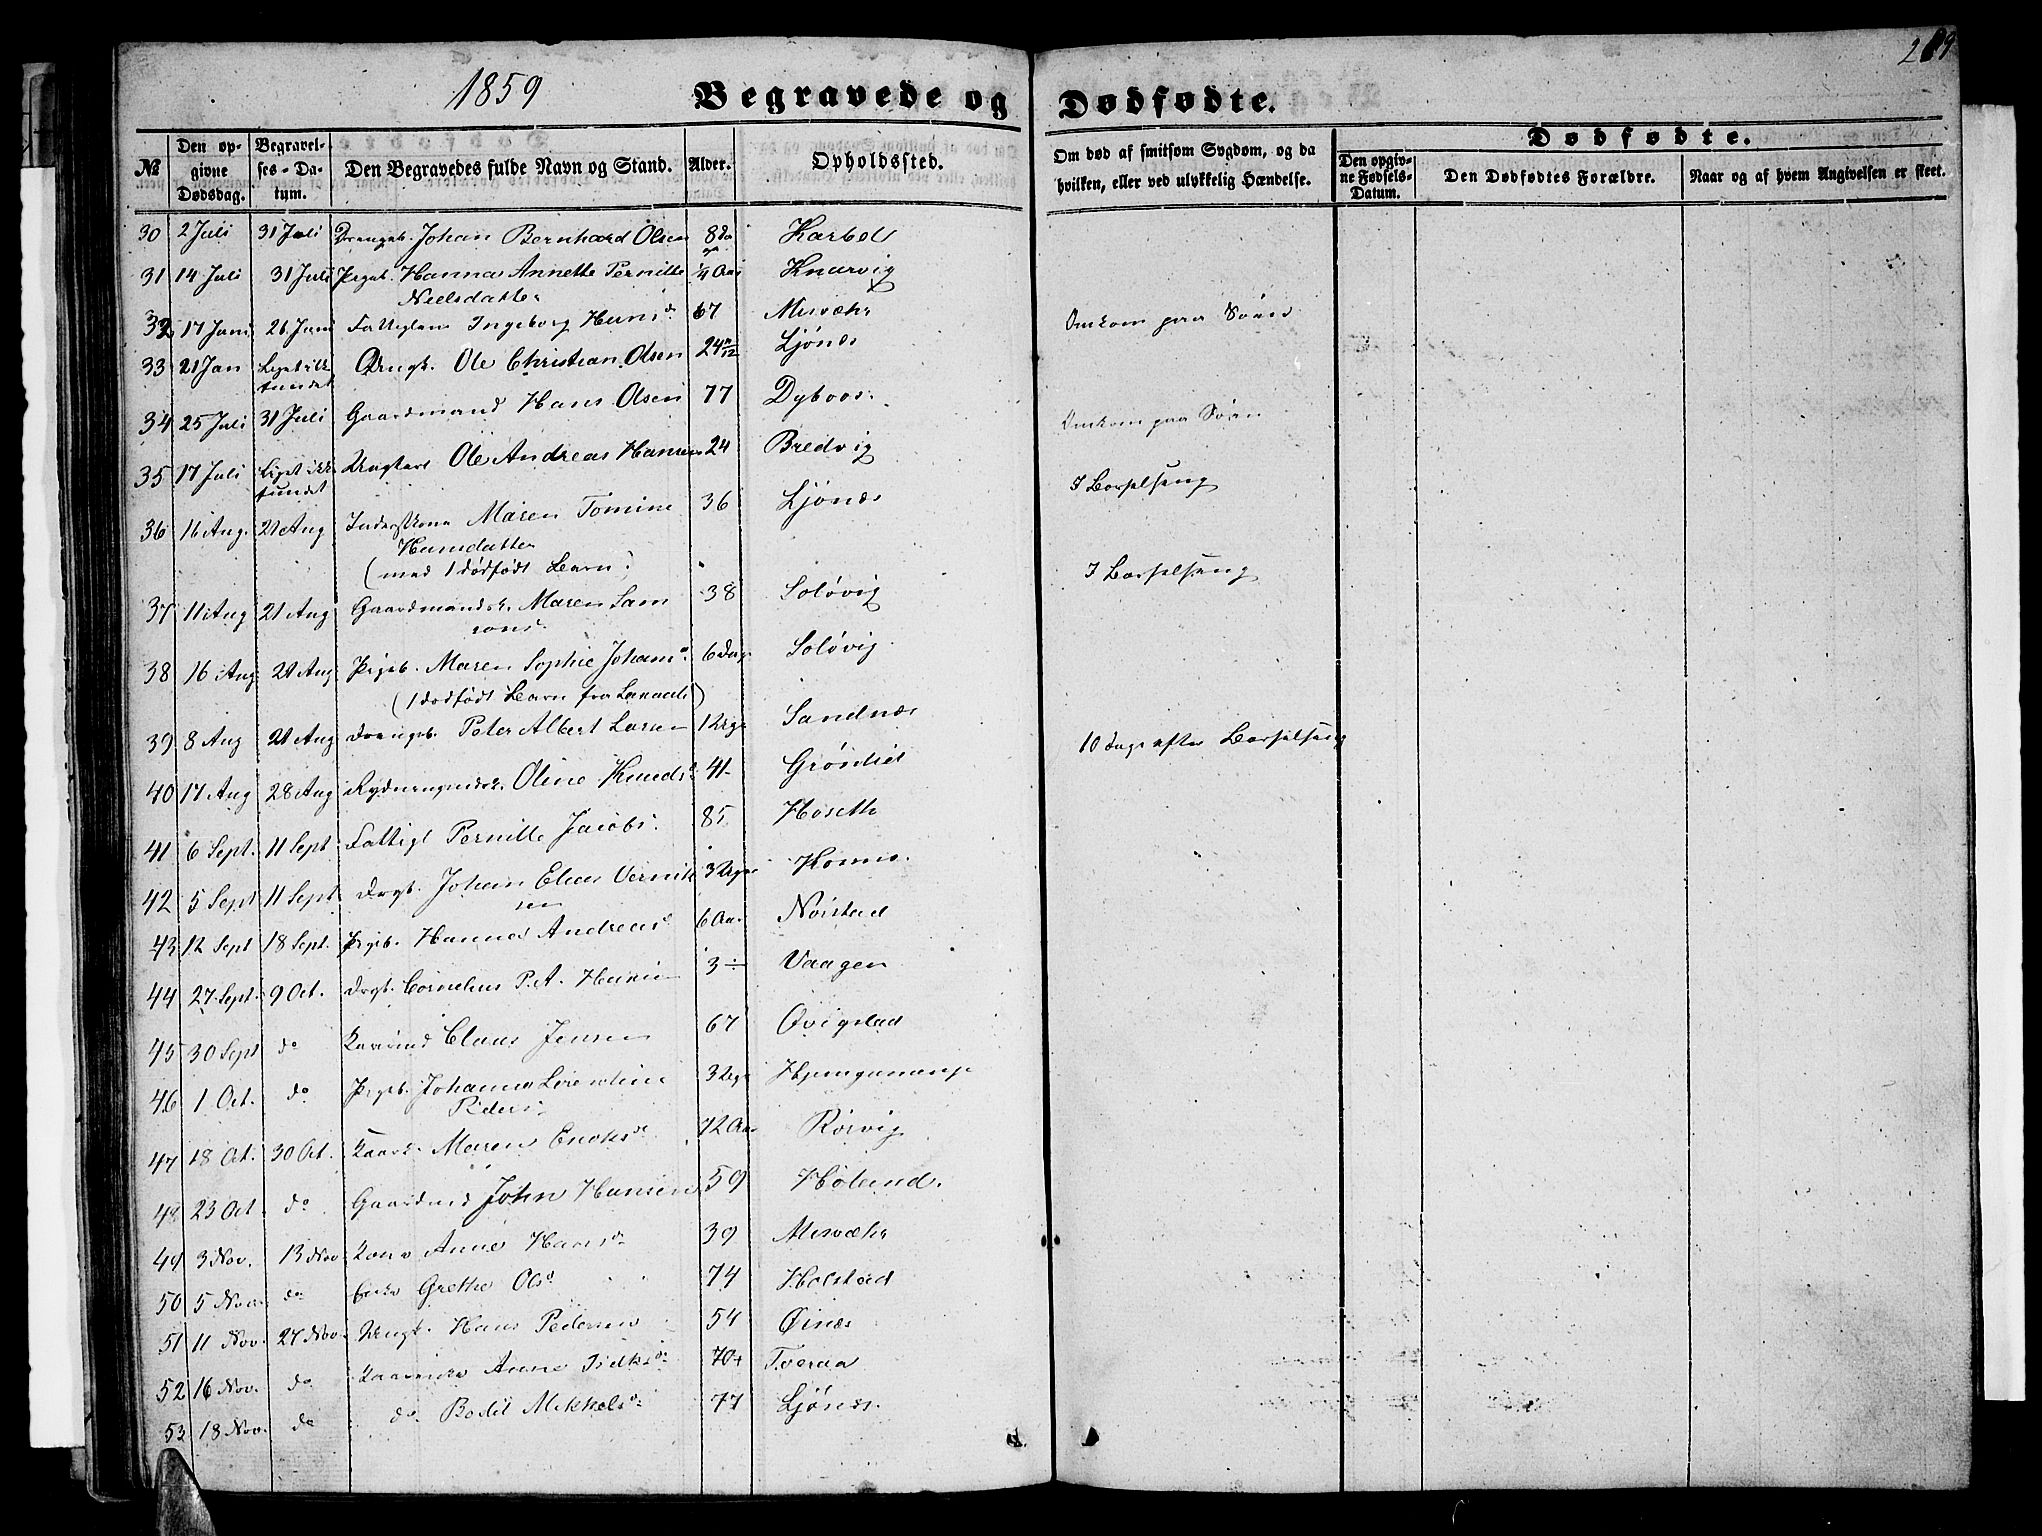 1859
269
Begravede og Dødfødte.
№
Den opgivne Dødsdag.
Begravelses-Datum.
Den Begravedes fulde Navn og Stand.
Alder.
Opholdssted.
Om død af smitsom Sygdom, og da hvilken, eller ved ulykkelig Hændelse.
Dødfødte.
Den opgivne Fødsels-Datum.
Den Dødfødtes Forældre.
Naar og af hvem Angivelsen er skeet.
30 2 Juli 31 Juli Drengeb. Johan Bernhard Olsen 8 Da
31 14 Juli 31 Juli Pigeb. Hanna Annette Pernille ¼ Aar Knarvig
Nielsdatter
32 17 Juni 26 Juni Fattiglem Ingeborg Hansd. 67 Misvæhr
33 21 Jan Liget ikke fundet Ungk. Ole Christian Olsen 24 Ljønes Omkom paa Søen
34 25 Juli 31 Juli Gaardmand Hans Olsen 77
35 17 Juli Liget ikke fundet Ungkarl Ole Andreas Hansen 24 Bredvig Omkom paa Søen
36 16 Aug. 21 Aug Maren Tomine 36 Ljønes I Barselseng
Hansdatter
(med 1 dødfødt Barn)
37 11 Aug 21 Aug Gaardmandsk. Maren Sam 38 Soløvig I Barselseng
sons.
38 16 Aug 21 Aug Pigeb. Maren Sophie Johansd. 6 Dage Soløvig
(1 dødfødt Barn fra )
39 8 Aug 21 Aug Drengeb. Peter Albert Larsen 1 Uge Sandnæs
40 17 Aug 28 Aug Oline Knudsd. 41 10 Dage efter Barselseng
41 6 Sept. 11 Sept Fattigl Pernille Jacobs. 85 Hoseth
42 5 Sept 11 Sept. Drgb. Johan Elias Bernik 3 Uger
sen
43 12 Sept 18 Sept. Pigeb. Hanna Andreasd 6 Aar
44 27 Sept. 9 Oct. Drgb. Cornelius P. A. Hansen 3 ÷ Vaagen
45 30 Sept do Claus Jensen 67
46 1 Oct. do Pigeb. Johanna Lorentine 3 Uge
Peders.
47 18 Oct. 30 Oct. Maren Enoksd 72 Aar Rørvig
48 23 Oct. do Gaardmd John Hansen 59
49 3 Nov. 13 Nov Anne Hansd. 39 Misvæhr
50 5 Nov. do Enke Grethe Olsd 74 Holstad
51 11 Nov. 27 Nov. Ungk. Hans Pedersen 54 Øinæs
52 16 Nov. do Anne 70+ Tveraa
53 18 Nov. do do Bodil Mikkelsd. 77 Ljønes.